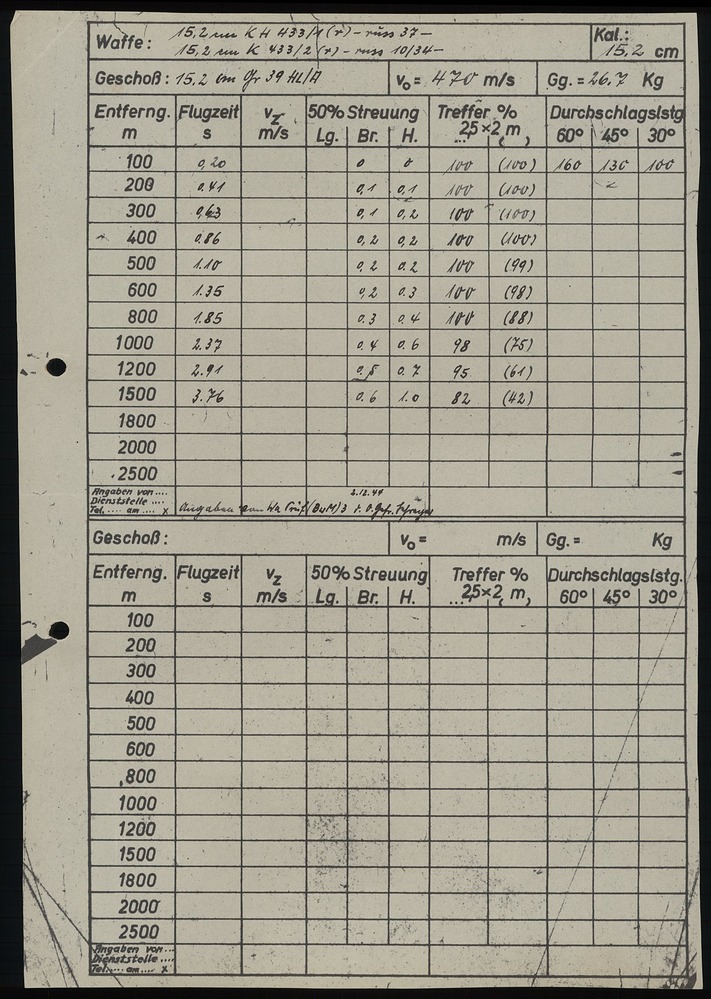 Waffe: 15,2 cm KH 433/1 (r) - russ 37 -
15,2 cm K 433/2 (r) - russ 10/34 -
Kal.: 15,2 cm
Geschoß: 15,2 cm Gr 39 HL/A v₀ = 470 m/s Gg. = 26,7 Kg
Entferng. Flugzeit v_z 50% Streuung Treffer % Durchschlagslstg
m s m/s Lg. Br. H. 2,5×2 m, 60° 45° 30°
100 0,20 0 0 100 (100) 160 130 100
200 0.41 0,1 0,1 100 (100)
300 0,63 0,1 0,2 100 (100)
400 0.86 0,2 0,2 100 (100)
500 1.10 0,2 0.2 100 (99)
600 1.35 0,2 0.3 100 (98)
800 1.85 0.3 0.4 100 (88)
1000 2.37 0.4 0.6 98 (75)
1200 2.91 0.5 0.7 95 (61)
1500 3.76 0.6 1.0 82 (42)
1800
2000
2500
Angaben von ....
Dienststelle ....
Tel. .... am .... x
2.12.44
Angaben von Wa Prüf (BuM) 3
Geschoß: v₀ = m/s Gg. = Kg
Entferng. Flugzeit v_z 50% Streuung Treffer % Durchschlagslstg.
m s m/s Lg. Br. H. ... 2,5×2 m, 60° 45° 30°
100
200
300
400
500
600
800
1000
1200
1500
1800
2000
2500
Angaben von ...
Dienststelle ....
Tel. .... am .... x